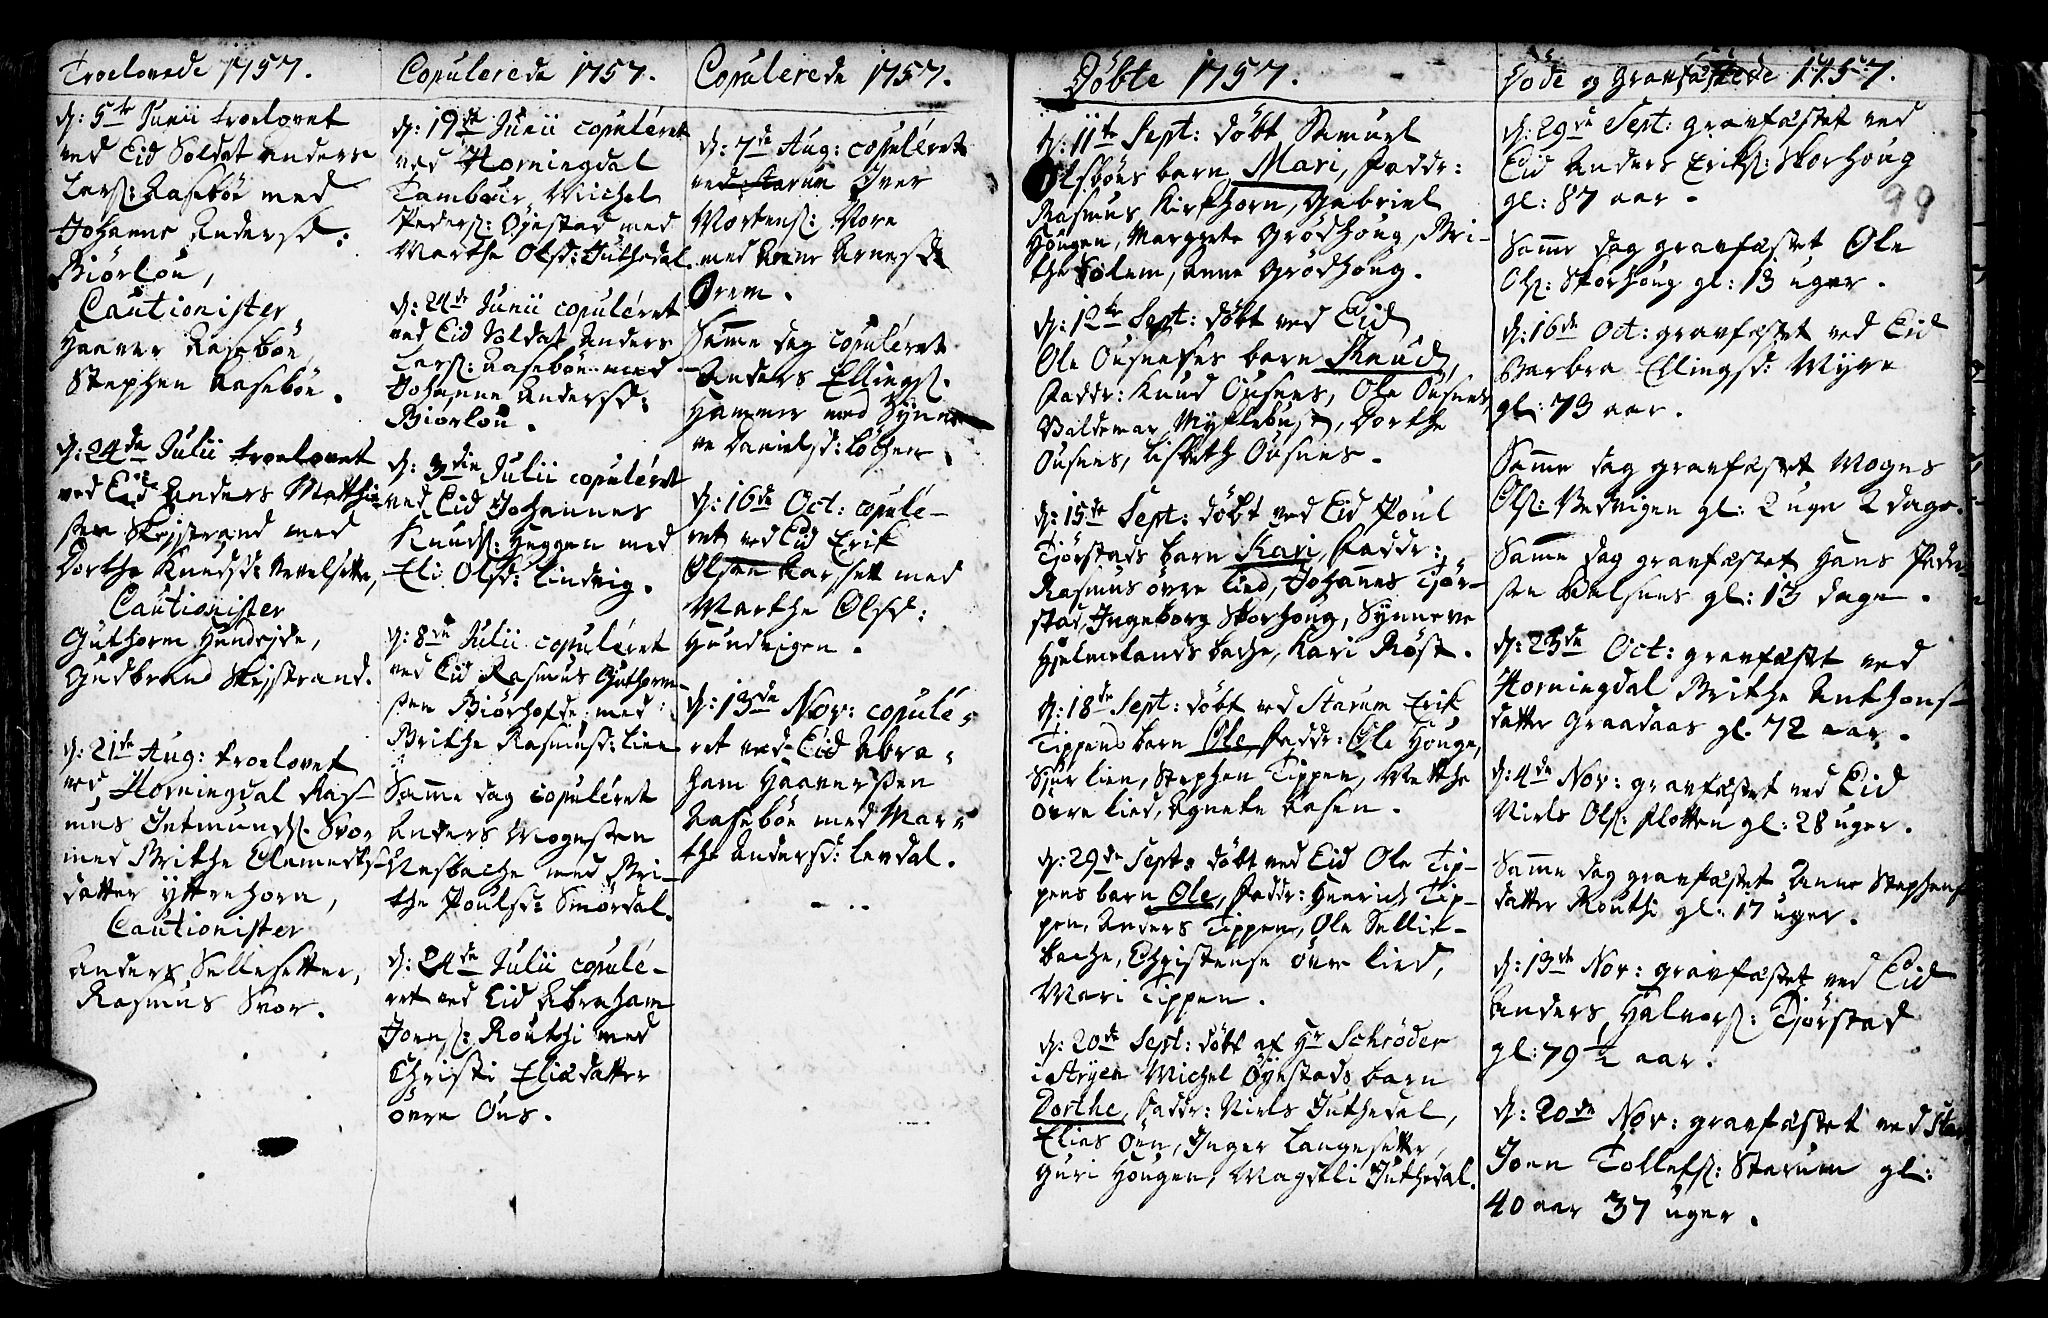 Troelovede 1757.
d: 5te Junii troelovet
ved Eid Soldat Anders
Lars: Aasebøe med
Johanne Andersd:
Biørlou,
Cautionister
Haaver Aasebøe,
Stephen Aasebøe.
d: 24de Julii troelovet
ved Eid Anders Matthia
sen Skejstrand med
Dorthe Knudsd: Nevelsette,
Cautionister
Guthorm Hundejde,
Gudbrand Skejstrand.
d: 21de Aug: troelovet
ved Horningdal Ras-
mus Intmunds: Svor
med Brithe Clemets-
datter Yttrehorn,
Cautionister
Anders Sellesetter,
Rasmus Svor.
Copulerede 1757.
d: 19de Junii copuléret
ved Horningdal
Tambour Michel
Peders: Öyestad med
Marthe Olsd: Juthedal.
d: 24de Junii copuléret
ved Eid Soldat Anders
Lars: Aasebøe med
Johanne Andersd:
Biørlou.
d: 3die Julii copuléret
ved Eid Johannes
Knuds: Heggen med
Eli Olsd: Lindvig.
d: 8de Julii copuléret
ved Eid Rasmus Guthorm-
sen Biørhofde med
Brithe Rasmusd: Lien
Samme dag copuléret
Anders Mogensen
Nesbache med Bri-
the Poulsd: Smördal.
d: 24de Julii copulé-
ret ved Eid Abraham
Joens: Routhi med
Christi Eliædatter
övre Ous.
Copulerede 1757.
d: 7de Aug: copuléret
ved Starum Iver
Mortens: Nore
med Anne Arnesd
Drem.
Samme dag copuléret
Anders Ellings:
Hammer med Synne
ve Danielsd: Löchen
d: 16de Oct: copulé-
ret ved Eid Erik
Olsen Karsett med
Marthe Olsd:
Hundvigen.
d: 13de Nov: copulé-
ret ved Eid Abra-
ham Haaversen
Aasebøe med Mar-
the Andersd: Levdal.
Döbte 1757.
d: 11te Sept: döbt Samuel
Olsböes barn Mari, Faddr:
Rasmus Kirkhorn, Gabriel
Hougen, Margrete Grødhoug, Bri-
the Solem, Anne Grødhoug.
d: 12te Sept: döbt ved Eid
Ole Ousneses barn Knud,
Faddr: Knud Ousnes, Ole Ousnes
Valdemar Myklebust, Dorthe
Ousnes, Lisbeth Ousnes.
d: 15de Sept: döbt ved Eid Poul
Tjörstads barn Kari, Faddr:
Rasmus övre Lied, Johannes Tjör-
stad, Ingeborg Skorhoug, Synneve
Hjelmelandsbache, Kari Röst.
d: 18de Sept: döbt ved Starum Erik
Tippens barn Ole, Faddr: Ole Houge,
Sjur Lien, Stephen Tippen, Metthe
övre Lied, Agnete Aasen.
d: 29de Sept: döbt ved Eid Ole Tip-
pens barn Ole, Faddr: Henrich Tip-
pen, Anders Tippen, Ole Sellie-
bache, Christense övre Lied,
Mari Tippen.
d: 20de Sept: döbt af Hr Schröder
i Stryen Michel Öyestads barn
Dorthe, Faddr: Niels Juthedal,
Elias Öen, Inger Langesetter,
Guri Hougen, Magdli Juthedal.
Döde og Gravfæstede 1757.
99
d: 29de Sept: gravfæstet ved
Eid Anders Eriks: Skorhoug
gl: 87 aar.
Samme dag gravfæstet Ole
Ols: Skorhoug gl: 13 uger.
d: 16de Oct: gravfæstet ved Eid
Barbra Ellingsd: Myre
gl: 73 aar.
Samme dag gravfæstet Mogens
Ols: Nedvigen gl: 2 uger 2 dage.
Samme dag gravfæstet Hans Peder-
sen Balsnes gl: 13 dage.
d: 23de Oct: gravfæstet ved
Horningdal Brithe Anthons-
datter Graadaas gl. 72 aar.
d: 4de Nov: gravfæstet ved Eid
Niels Ols: Flotten gl: 28 uger.
Samme dag gravfæstet Anne Stephens
datter Routhi gl: 17 uger.
d: 13de Nov: gravfæstet ved Eid
Anders Halvors: Tjörstad
gl: 79 1/2 aar.
d: 20de Nov: gravfæstet ved Star
Joen Tollefs: Starum gl:
40 aar 37 uger.